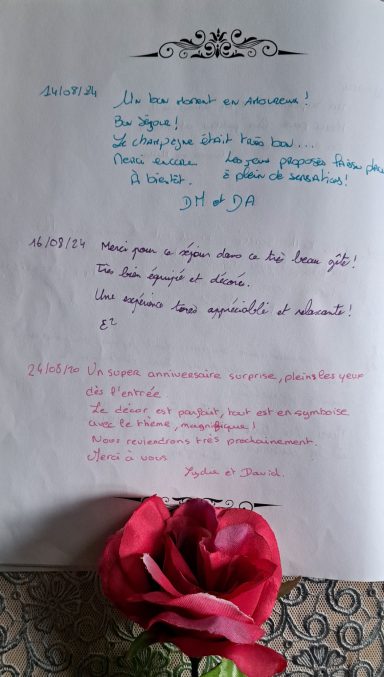 14/08/24 Un bon moment en amoureux !
Bon séjour !
Le champagne était très bon...
Merci encore. Les jeux proposés faisai place
À bientôt. à plein de sensations !
DM et DA
16/08/24 Merci pour ce séjour dans ce très beau gîte !
Très bien équipé et décoré.
Une expérience très appréciable et relaxante !
E²
24/08/20 Un super anniversaire surprise, pleins les yeux
dès l'entrée
Le décor est parfait, tout est en symboise
avec le thème, magnifique !
Nous reviendrons très prochainement.
Merci à vous
Lydie et David.